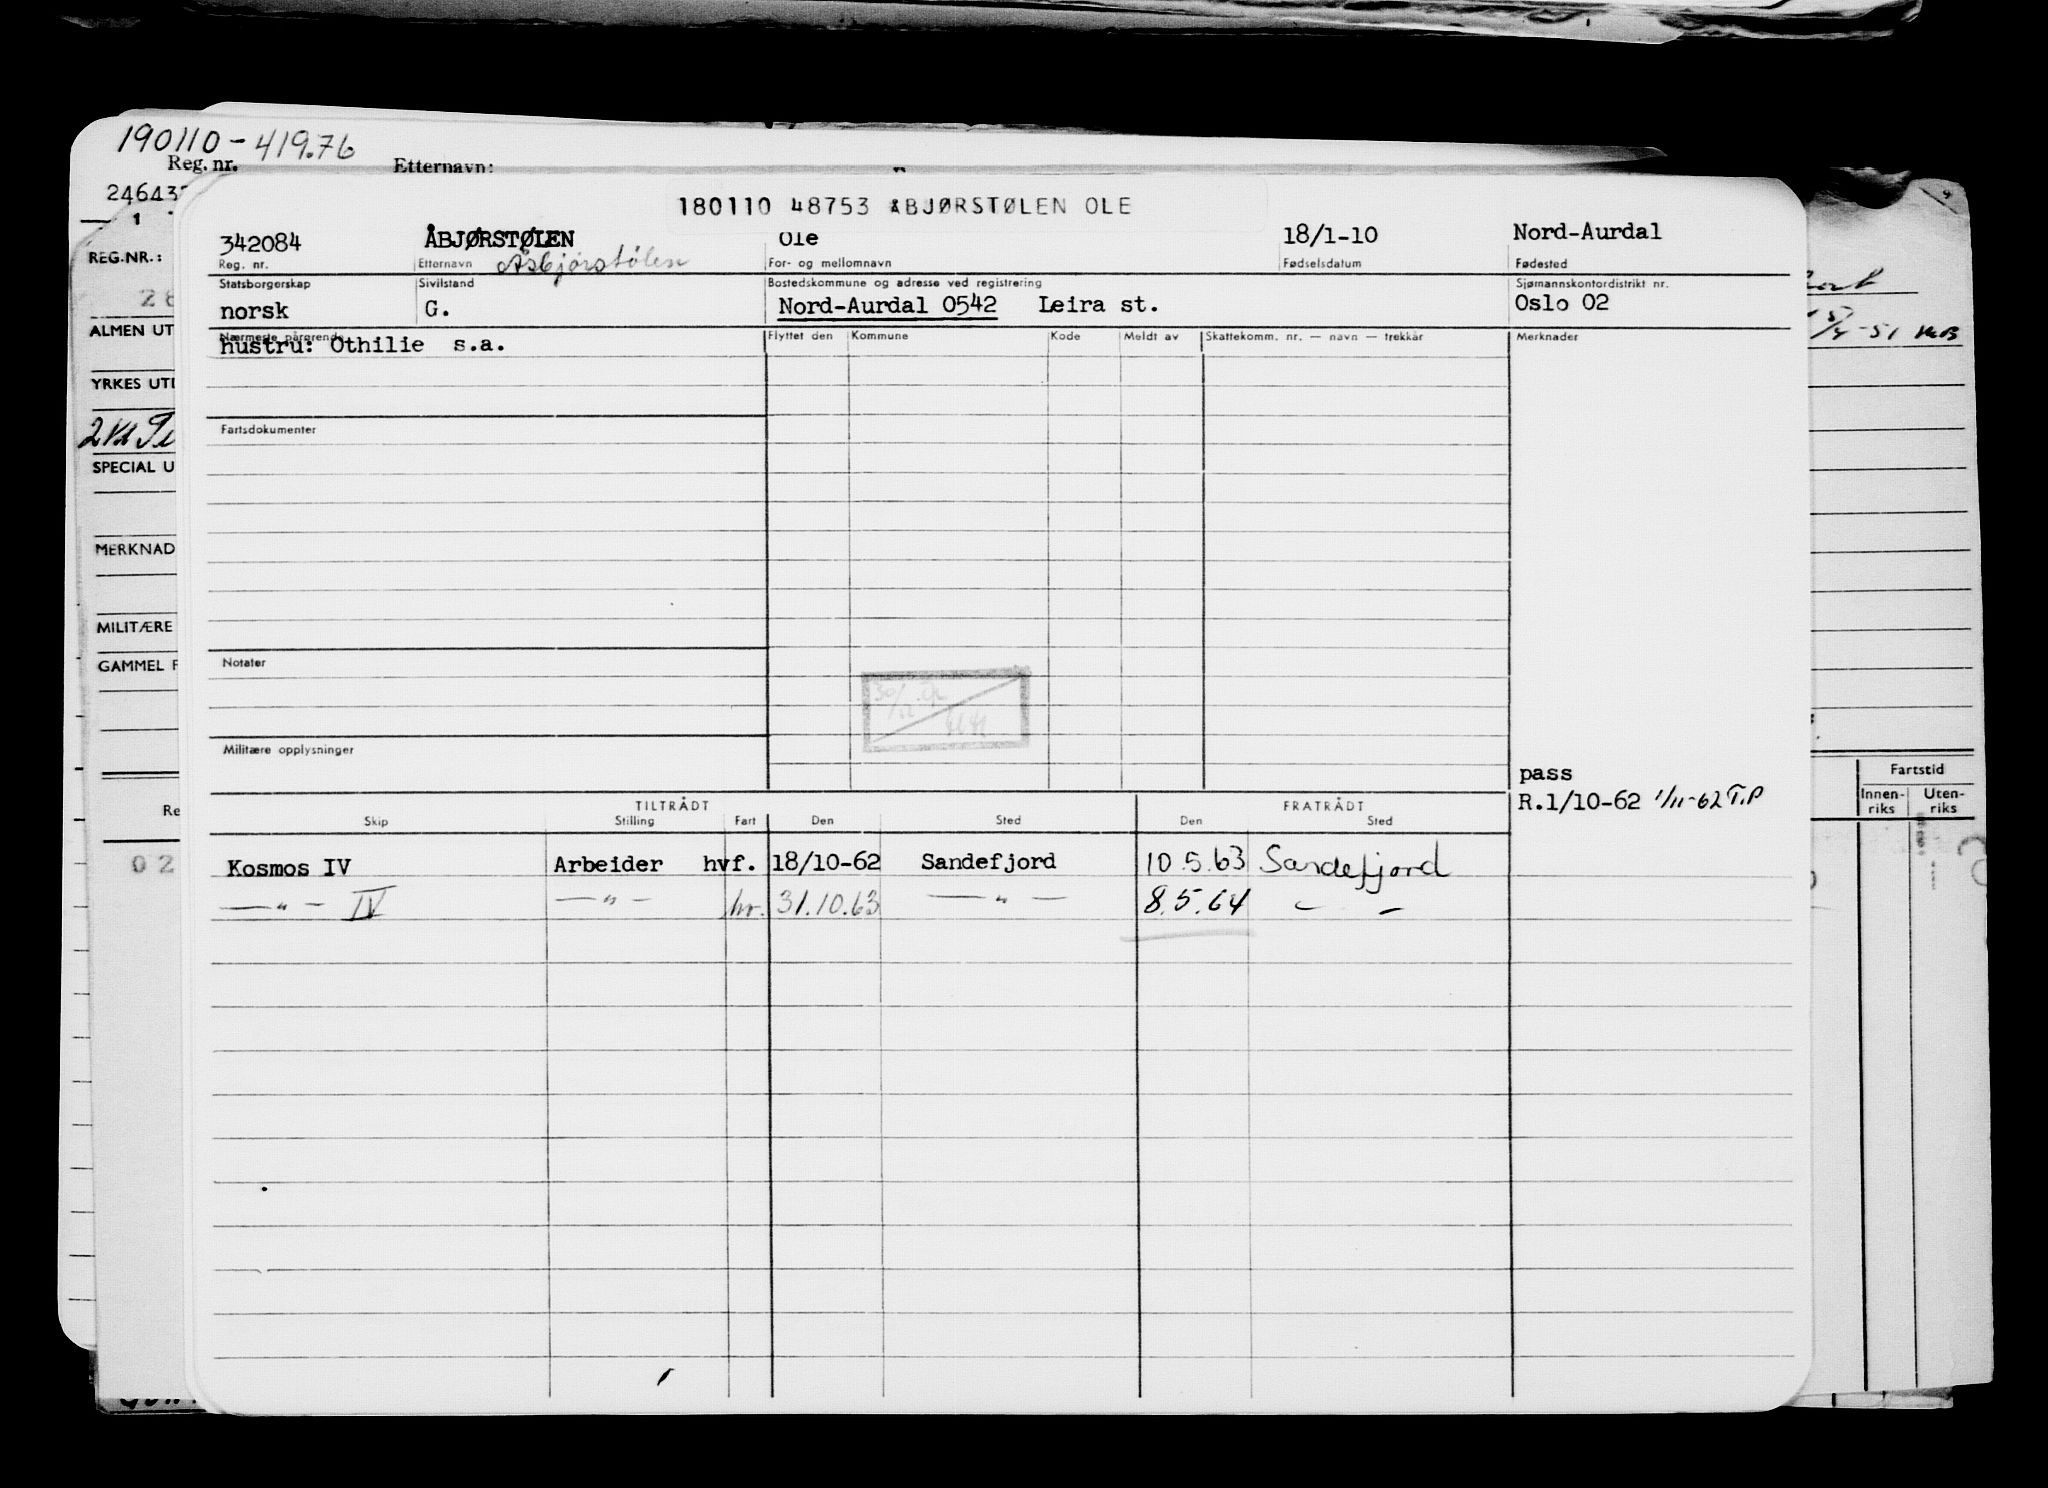 190110-419.76
Reg. nr. Etternavn:
24643
1
REG.NR.:
28
ALMEN UT
YRKES UTD
2 Kl
SPECIAL U
MERKNAD
MILITÆRE
GAMMEL F
Re
02
180110 48753 ÅBJØRSTØLEN OLE
342084 ÅBJØRSTØLEN Ole 18/1-10 Nord-Aurdal
Reg. nr. Etternavn Åsbjørstølen For- og mellomnavn Fødselsdatum Fødested
Statsborgerskap Sivilstand Bostedskommune og adresse ved registrering Sjømannskontordistrikt nr.
norsk G. Nord-Aurdal 0542 Leira st. Oslo 02
Nærmeste pårørende Flyttet den Kommune Kode Meldt av Skattekomm. nr. — navn — trekkår Merknader
hustru: Othilie s.a.
Fartsdokumenter
Notater
Militære opplysninger
pass
R.1/10-62 1/11-62 T.P
TILTRÅDT FRATRÅDT
Skip Stilling Fart Den Sted Den Sted
Kosmos IV Arbeider hvf. 18/10-62 Sandefjord 10.5.63 Sandefjord
— " — IV — " — hv. 31.10.63 — " — 8.5.64 — —
5/4-51
Fartstid
Innen-riks Uten-riks